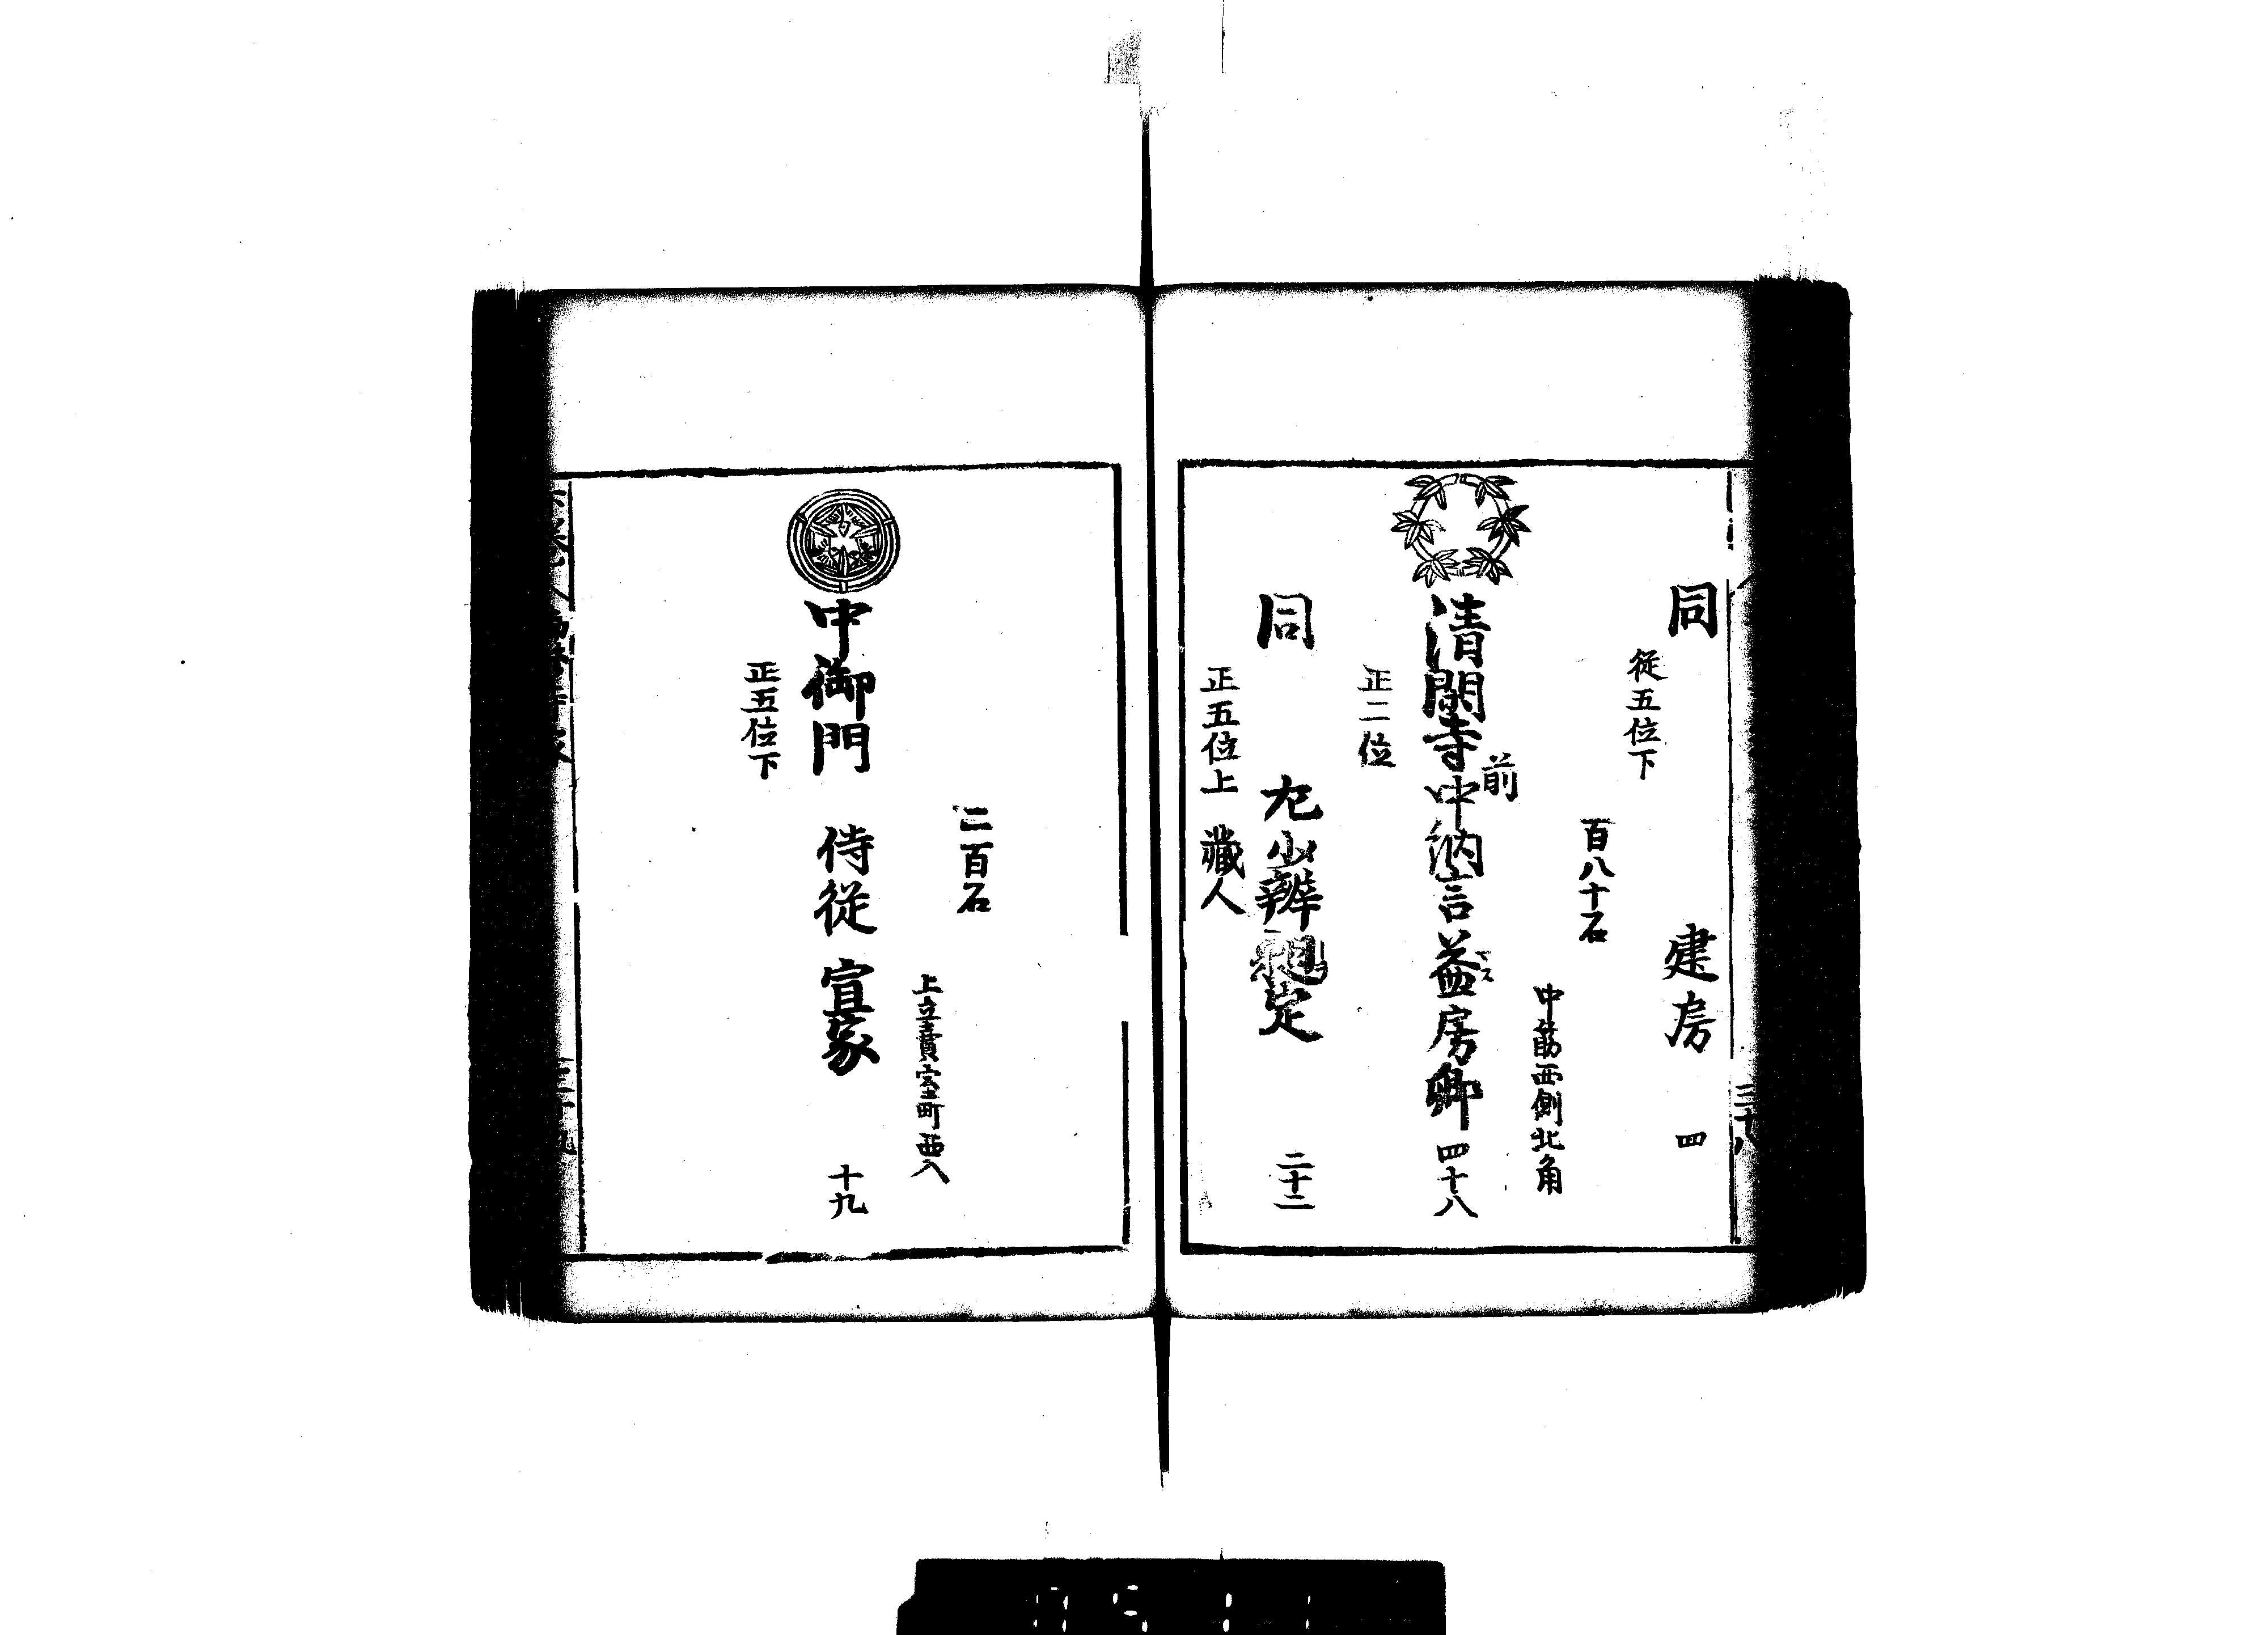 同　建房　四
従五位下
百八十石
中筋西側北角
前
清閑寺中納言益房卿　四十八
マス
正二位
同　左少辨昶定　二十二
正五位上　蔵人
三十八
二百石
上立賣室町西入
中御門　侍従　宣家　十九
正五位下